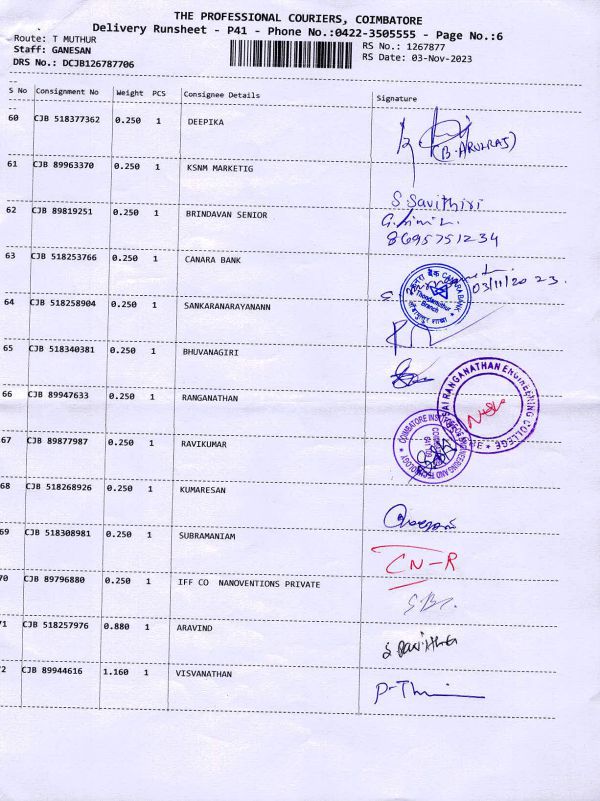 THE PROFESSIONAL COURIERS, COIMBATORE
Delivery Runsheet - P41 - Phone No.:0422-3505555 - Page No.:6
Route: T MUTHUR
RS No.: 1267877
Staff: GANESAN
RS Date: 03-Nov-2023
DRS No.: DCJB126787706
S No Consignment No Weight PCS Consignee Details Signature
60 CJB 518377362 0.250 1 DEEPIKA
(B. ARULRAJ)
61 CJB 89963370 0.250 1 KSNM MARKETIG
S Savithiri
62 CJB 89819251 0.250 1 BRINDAVAN SENIOR
8695751234
63 CJB 518253766 0.250 1 CANARA BANK
03/11/2023.
CANARA BANK
Thondamuthur
Branch
64 CJB 518258904 0.250 1 SANKARANARAYANANN
65 CJB 518340381 0.250 1 BHUVANAGIRI
66 CJB 89947633 0.250 1 RANGANATHAN
RANGANATHAN ENGINEERING COLLEGE
67 CJB 89877987 0.250 1 RAVIKUMAR
COIMBATORE INSTITUTE OF ENGINEERING AND TECHNOLOGY
68 CJB 518268926 0.250 1 KUMARESAN
69 CJB 518308981 0.250 1 SUBRAMANIAM
CN-R
70 CJB 89796880 0.250 1 IFF CO NANOVENTIONS PRIVATE
71 CJB 518257976 0.880 1 ARAVIND
72 CJB 89944616 1.160 1 VISVANATHAN